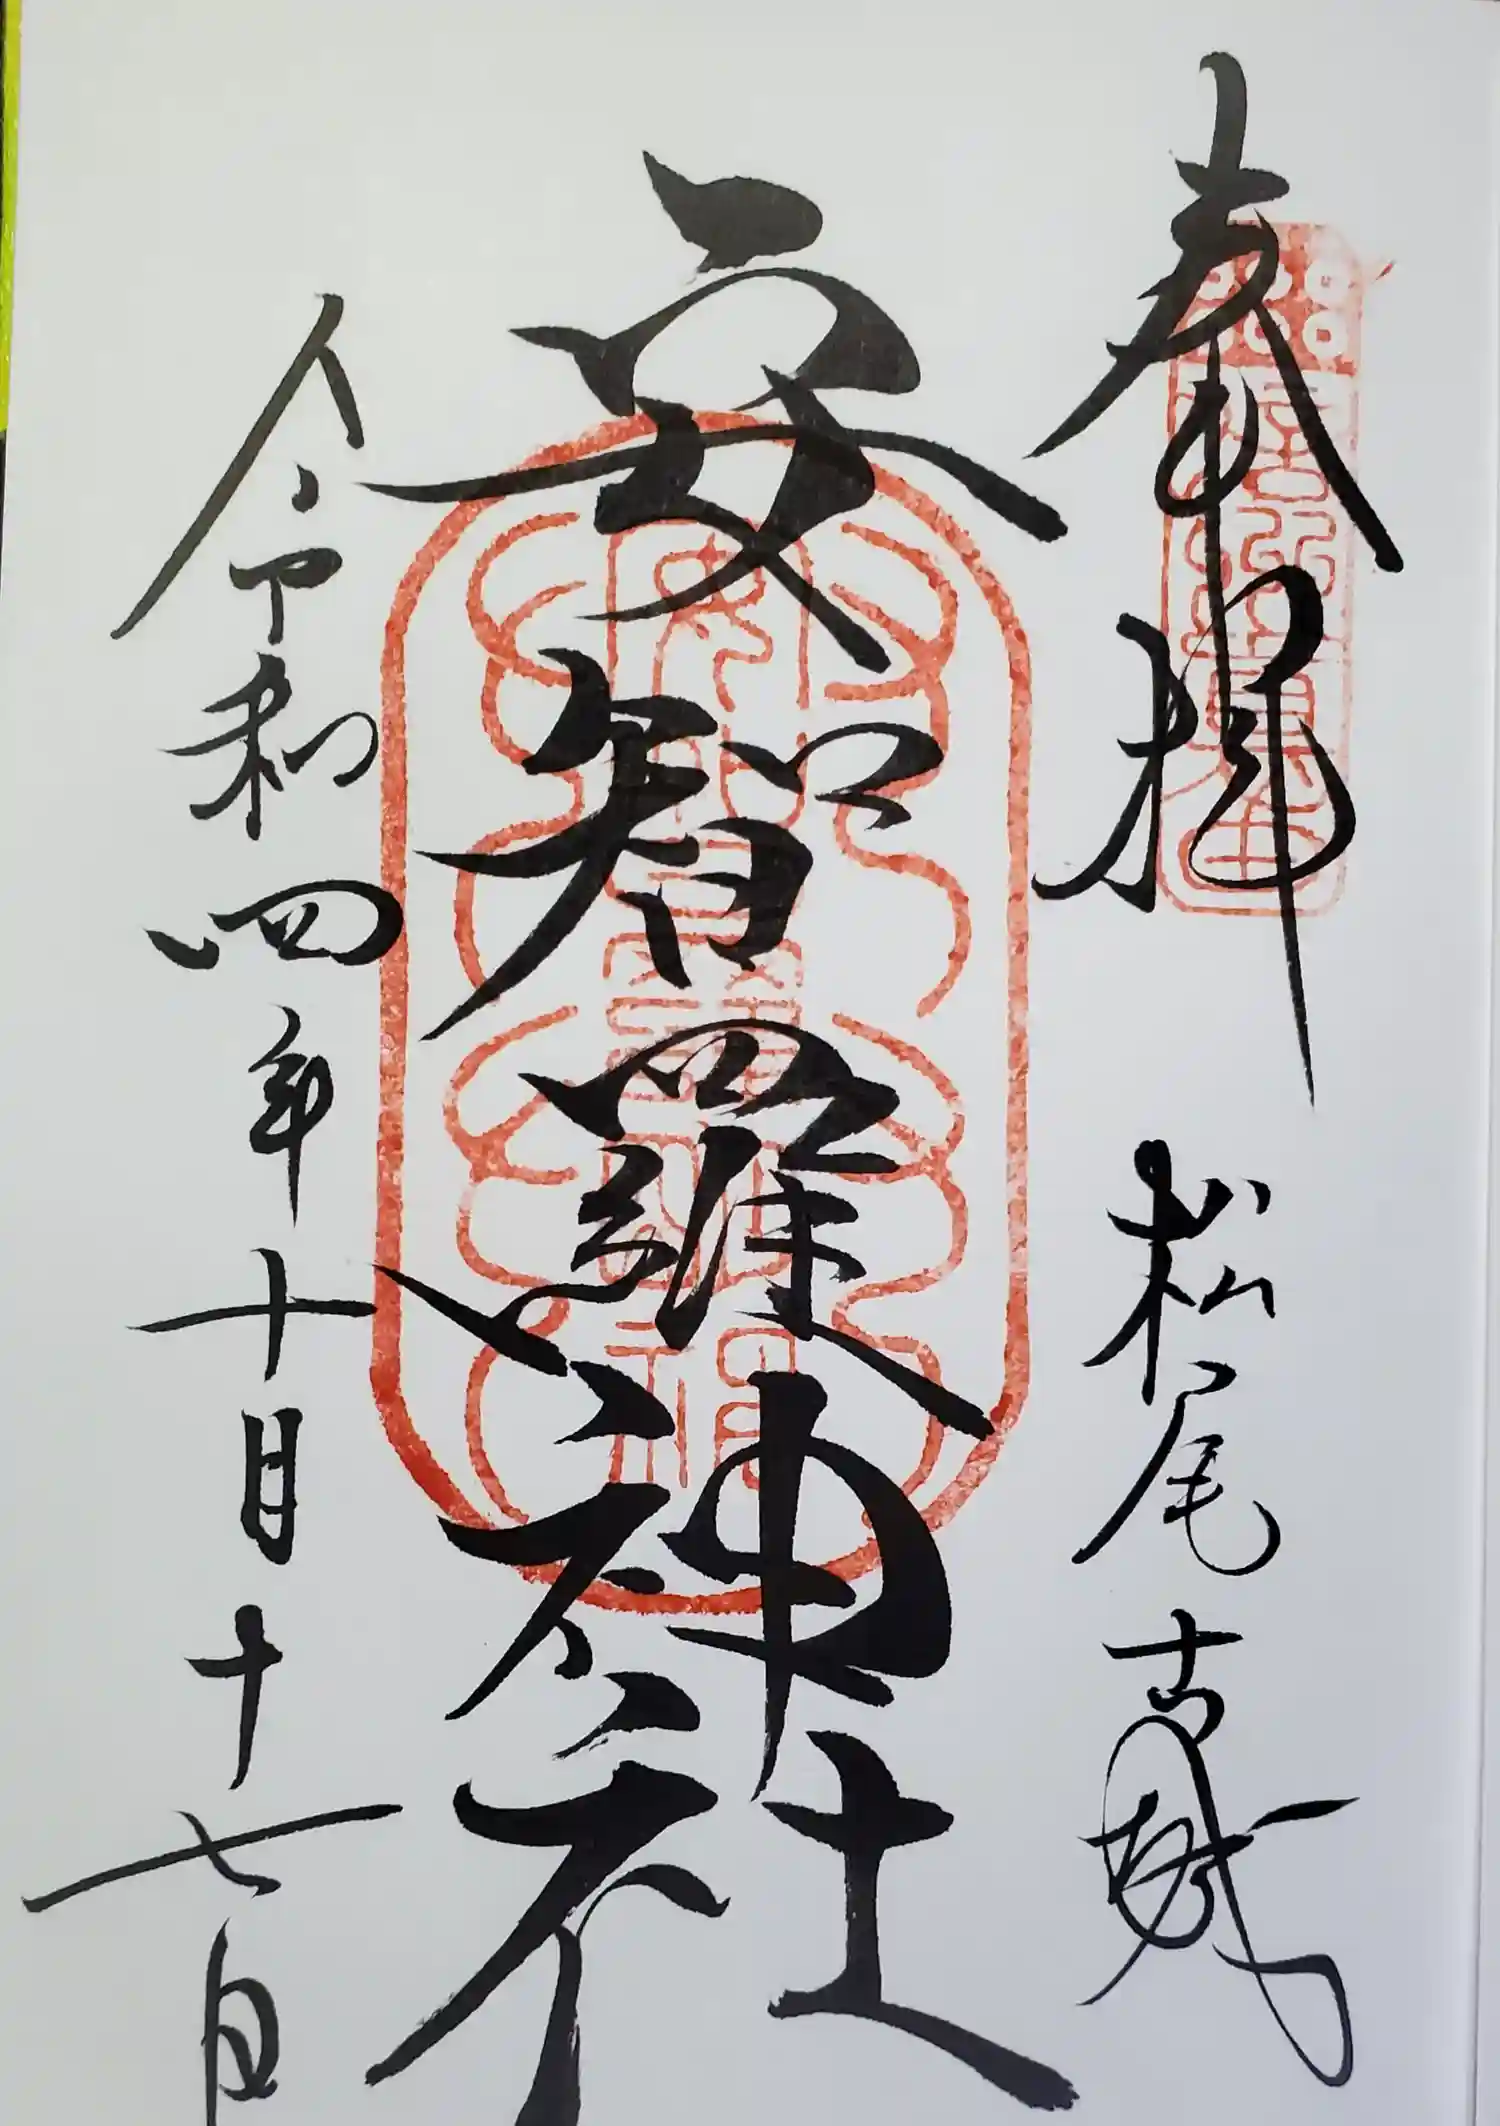 奉拝 松尾古城
安智羅神社
令和四年十月十七日